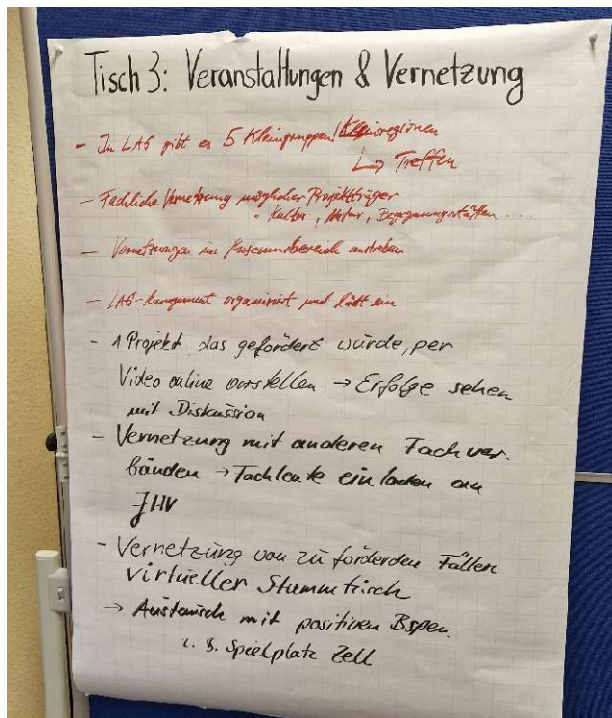 Tisch 3: Veranstaltungen & Vernetzung
- In LAG gibt es 5 Kleingruppen/Kleinregionen
↳ Treffen
- Fachliche Vernetzung möglicher Projektträger
• Kultur, Natur, Begegnungsstätten ....
- Vernetzungen im anstreben
- LAG-Management organisiert und lädt ein
- 1 Projekt, das gefördert wurde, per
Video online vorstellen → Erfolge sehen
mit Diskussion
- Vernetzung mit anderen Fachver-
bänden → Fachleute einladen an
JHV
- Vernetzung von zu förderden Fällen
virtueller Stammtisch
→ Austausch mit positiven Bspen.
z. B. Spielplatz Zell